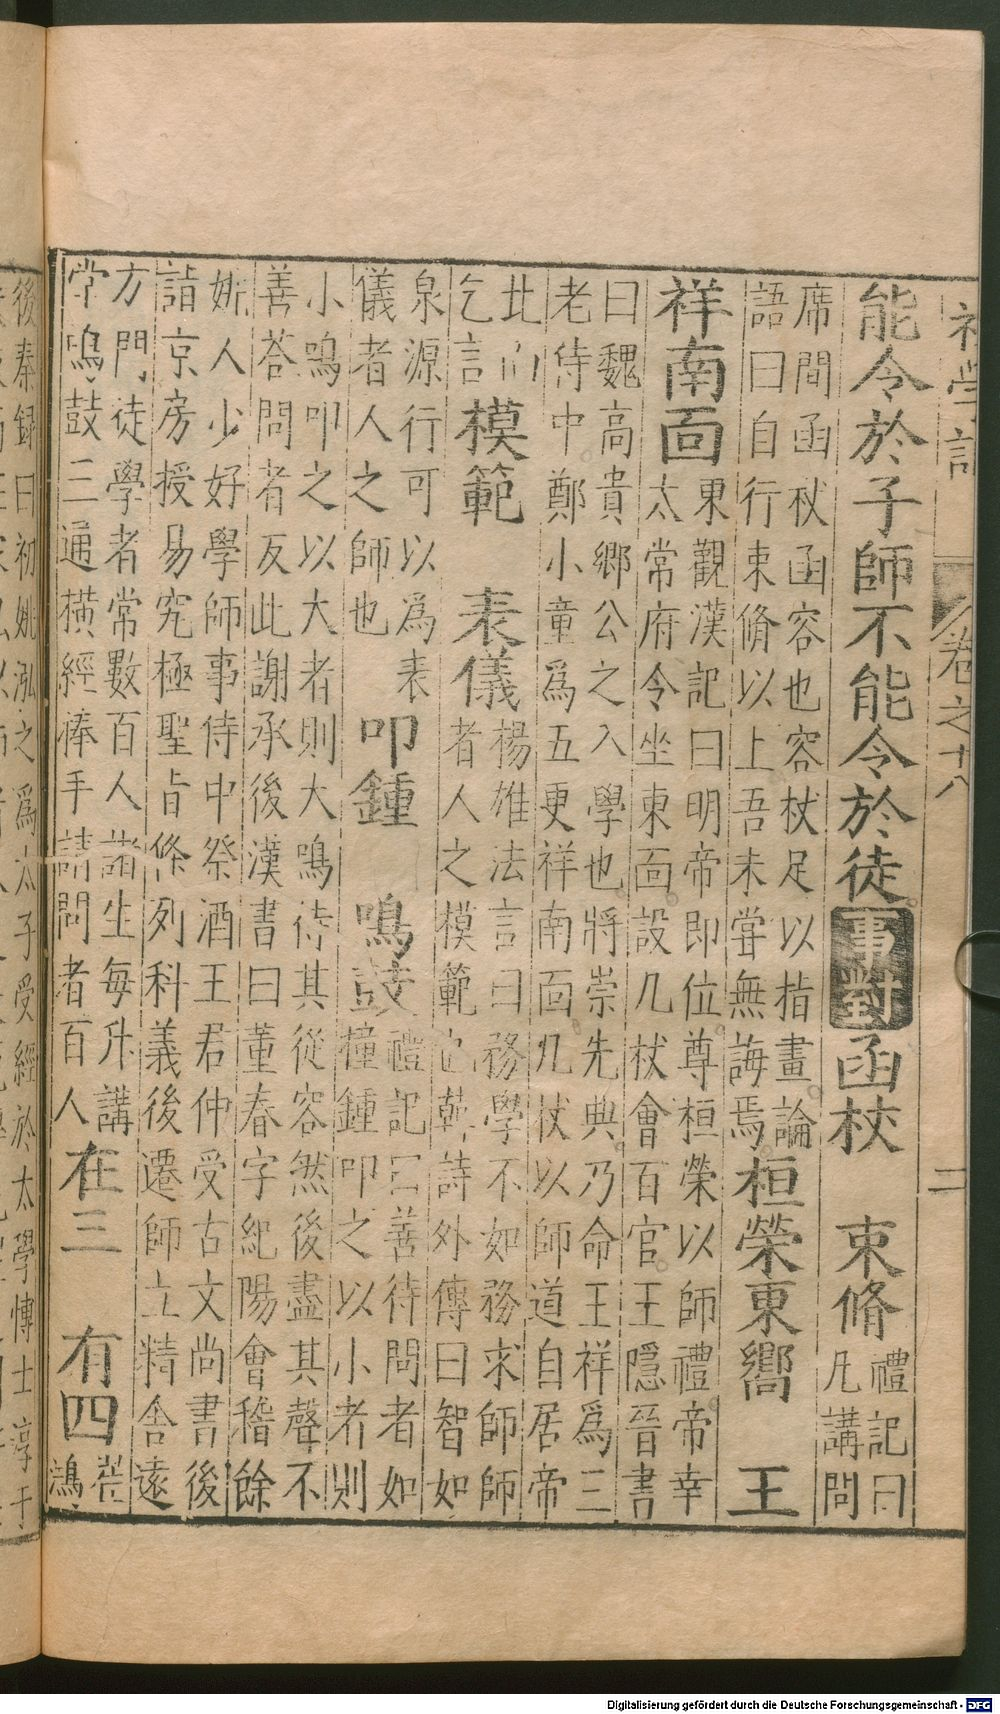 能令於子師不能令於徒事對函杖 束脩禮記曰凡講問
席間函杖函容也容杖足以指畫論
語曰自行束脩以上吾未嘗無誨焉桓榮東嚮 王
祥南面東觀漢記曰明帝即位尊桓榮以師禮帝幸
太常府令坐東面設几杖會百官王隱晉書
曰魏高貴鄉公之入學也將崇先典乃命王祥爲三
老侍中鄭小童爲五更祥南面几杖以師道自居帝
北面
乞言模範 表儀楊雄法言曰務學不如務求師師
者人之模範也韓詩外傳曰智如
泉源行可以爲表
儀者人之師也 叩鍾 鳴鼓禮記曰善待問者如
撞鍾叩之以小者則
小鳴叩之以大者則大鳴待其從容然後盡其聲不
善荅問者反此謝承後漢書曰董春字紀陽會稽餘
姚人少好學師事侍中祭酒王君仲受古文尚書後
詣京房授易究極聖旨條列科義後遷師立精舍遠
方門徒學者常數百人諸生每升講
堂鳴鼓三通橫經捧手請問者百人在三 有四崔
鴻
後秦録曰初姚泓之爲太子受經於太學博士淳于
卷之十八
二
Digitalisierung gefördert durch die Deutsche Forschungsgemeinschaft - DFG